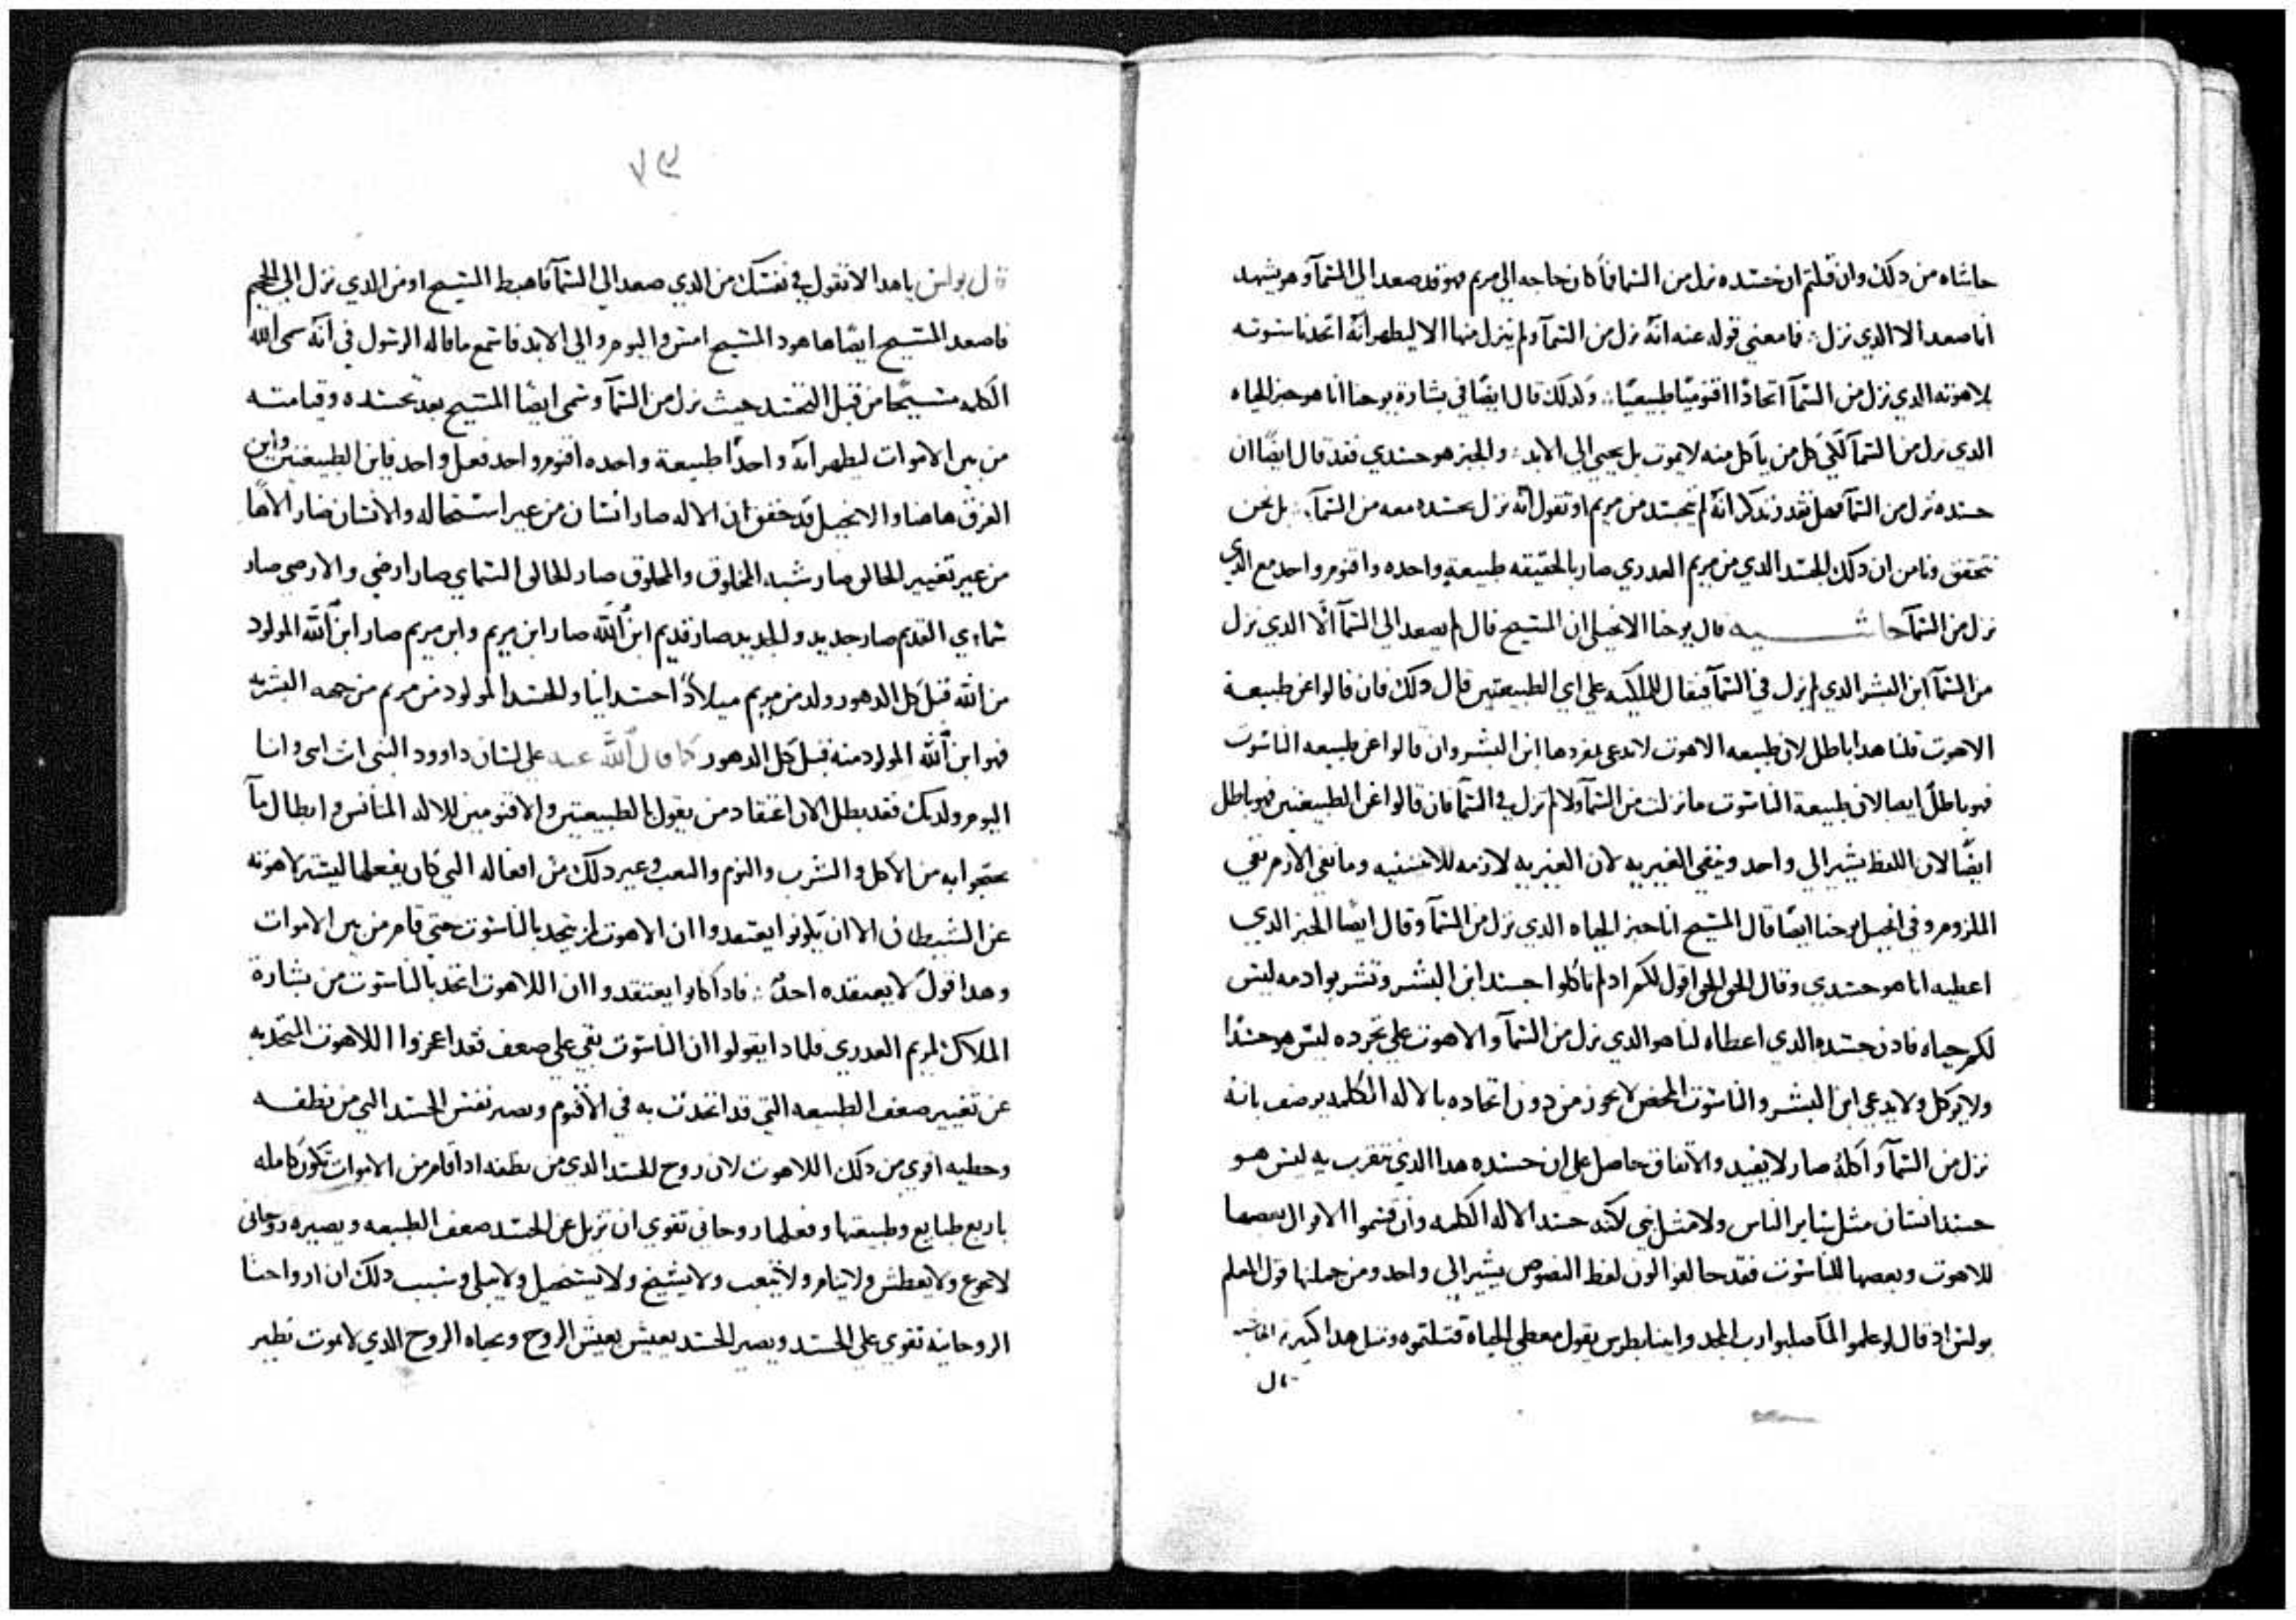 حاشاه من دلك وان قلتم ان جسده نزل من السما فما كان حاجه الي مريم فهو قد صعد الي السمآ وهو يشهد
انا صعد الا الدي نزل فما معني قوله عنه انه نزل من السمآ ولم ينزل منها الا ليظهر انه اتحد ناسوته
بلاهوته الدي نزل من السمآ اتحادًا اقنوميًا طبيعيًا ولدلك قال ايضًا في بشارة يوحنا انا هو خبز الحياه
الدي نزل من السمآ لكي كل من ياكل منه لا يموت بل يحيي الي الابد والخبز هو جسدي فقد قال ايضًا ان
جسده نزل من السمآ فهل تقدر تدكر انه لم يتجسد من مريم او تقول انه نزل بجسده معه من السمآ بل نحن
نتحقق ونامن ان دلك الجسد الدي من مريم العدري صار بالحقيقه طبيعة واحده واقنوم واحد مع الدي
نزل من السمآ حاشيه قال يوحنا الانجيلي ان المسيح قال لم يصعد الي السمآ الا الدي نزل
من السمآ ابن البشر الدي لم يزل في السمآ فيقال للملكيه علي اي الطبيعتين قال دلك فان قالوا عن طبيعة
الاهوت قلنا هدا باطل لان طبيعه الاهوت لا تدعي بمفردها ابن البشر وان قالوا عن طبيعه الناسوت
فهو باطلٌ ايضا لان طبيعة الناسوت ما نزلت من السمآ ولا لم تزل في السمآ فان قالوا عن الطبيعتين فهو باطل
ايضًا لان اللفظ يشير الي واحد وينفي الغيريه لان الغيريه لازمه للاتنينيه وما نفي الازم نفي
الملزوم وفي انجيل يوحنا ايضًا قال المسيح انا خبز الحياه الدي نزل من السمآ وقال ايضًا الخبز الدي
اعطيه انا هو جسدي وقال الحق الحق اقول لكم ادا لم تاكلوا جسد ابن البشر وتشربوا دمه ليس
لكم حياه فادن جسده الدي اعطاه لنا هو الدي نزل من السمآ والاهوت علي تجرده ليس هو جسدًا
ولا يوكل ولا يدعي ابن البشر والناسوت المحض لا يجوز من دون اتحاده بالاله الكلمه يوصف بانه
نزل من السمآ واكله صار لا يفيد والاتفاق حاصل علي ان جسده هدا الدي نتقرب به ليس هو
جسد انسان مثل ساير الناس ولا مثل نبي لكنه جسد الاله الكلمه وان قسموا الاقوال بعضها
للاهوت وبعضها للناسوت فقد خالفوا لان لفظ النصوص يشير الي واحد ومن جملتها قول المعلم
بولس اد قال لو علموا لما صلبوا رب المجد وايضا بطرس يقول معطي الحياة قتلتموه ومتل هدا كثير
قال
٧٣
قال بولس يا هدا لا تقول في نفسك من الدي صعد الي السمآ فاهبط المسيح او من الدي نزل الي الجحيم
فاصعد المسيح ايضًا ها هود المسيح امس واليوم والي الابد فاسمع ما قاله الرسول في انه سمي الله
الكلمه مسيحًا من قبل التجسد حيث نزل من السمآ وسمي ايضًا المسيح بعد تجسده وقيامته
من بين الاموات ليظهر انه واحدًا طبيعة واحده اقنوم واحد فعل واحد فاين الطبيعتين واين
الفرق هاهنا والانجيل قد حقق ان الاله صار انسان من غير استحاله والانسان صار الاهًا
من غير تغيير الخالق صار شبه المخلوق والمخلوق صار الخالق السماي صار ارضي والارضي صار
سماوي القديم صار جديد والجديد صار قديم ابن الله صار ابن مريم وابن مريم صار ابن الله المولود
من الله قبل كل الدهور ولد من مريم ميلادًا جسدانيا والجسد المولود من مريم من جهه البشريه
فهو ابن الله المولود منه قبل كل الدهور كما قال الله عنه علي لسان داوود النبي انت ابني وانا
اليوم ولدتك فقد بطل الان اعتقاد من يقول بالطبيعتين والاقنومين للاله المتانس وابطال ما
يحتجوا به من الاكل والشرب والنوم والتعب وغير دلك من افعاله التي كان يفعلها ليستر لاهوته
عن الشيطان الا ان يكونوا يعتقدوا ان الاهوت لم يتحد بالناسوت حتي قام من بين الاموات
وهدا قول لا يعتقده احدٌ فادا كانوا يعتقدوا ان اللاهوت اتحد بالناسوت من بشارة
الملاك لمريم العدري فلمادا يقولوا ان الناسوت بقي علي ضعف فقد اعجزوا اللاهوت المتحد به
عن تغيير ضعف الطبيعه التي قد اتحدت به في الاقنوم وتصير نفس الجسد التي من نطفه
وخطيه اقوي من دلك اللاهوت لان روح الجسد الدي من نطفه ادا قام من الاموات تكون كامله
باربع طبايع وطبيعتها وفعلها روحاني تقوي ان تزيل عن الجسد ضعف الطبيعه ويصيره روحاني
لا يجوع ولا يعطش ولا ينام ولا يتعب ولا يشيخ ولا يستحيل ولا يبلي وسبب دلك ان ارواحنا
الروحانيه تقوي علي الجسد ويصير الجسد يعيش بعيش الروح وبحياه الروح الدي لا يموت نظير